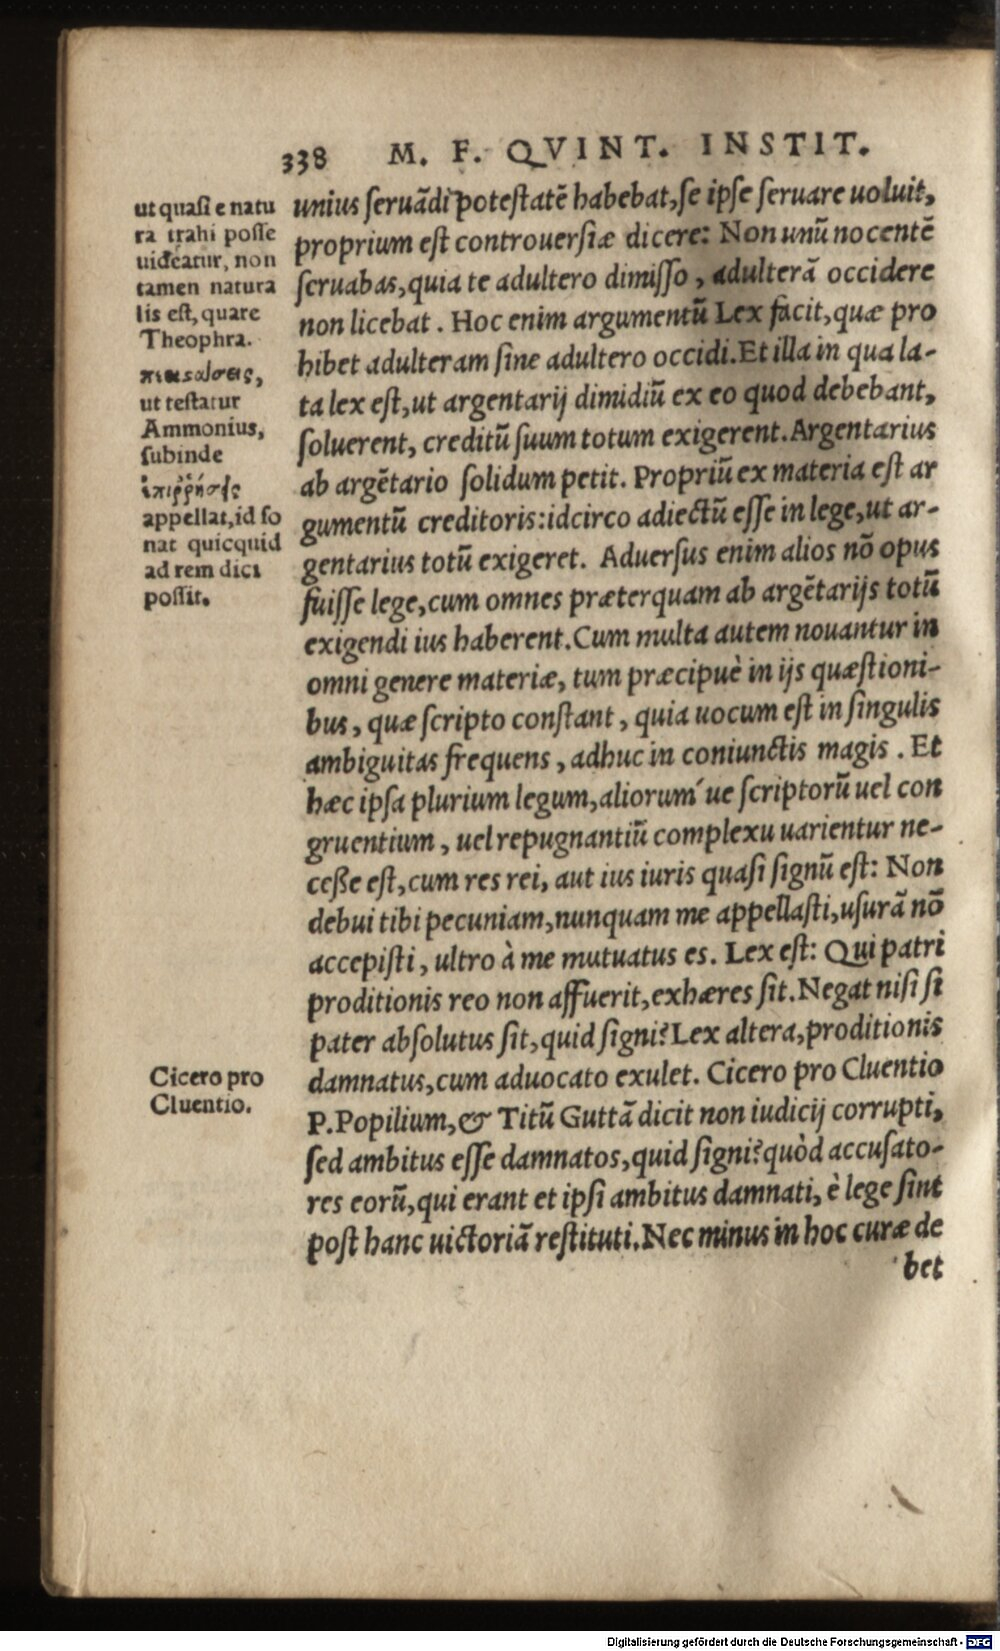 338 M. F. QVINT. INSTIT.
ut quasi e natu
ra trahi posse
uideatur, non
tamen natura
lis est, quare
Theophra.
ut testatur
Ammonius,
subinde
appellat, id so
nat quicquid
ad rem dici
possit.
unius seruādi potestatē habebat, se ipse seruare uoluit,
proprium est controuersiæ dicere: Non unū nocentē
seruabas, quia te adultero dimisso, adulterā occidere
non licebat. Hoc enim argumentū Lex facit, quæ pro
hibet adulteram sine adultero occidi. Et illa in qua la-
ta lex est, ut argentarij dimidiū ex eo quod debebant,
soluerent, creditū suum totum exigerent. Argentarius
ab argētario solidum petit. Propriū ex materia est ar
gumentū creditoris: idcirco adiectū esse in lege, ut ar-
gentarius totū exigeret. Aduersus enim alios nō opus
fuisse lege, cum omnes præterquam ab argētarijs totū
exigendi ius haberent. Cum multa autem nouantur in
omni genere materiæ, tum præcipuè in ijs quæstioni-
bus, quæ scripto constant, quia uocum est in singulis
ambiguitas frequens, adhuc in coniunctis magis. Et
hæc ipsa plurium legum, aliorum´ue scriptorū uel con
gruentium, uel repugnantiū complexu uarientur ne-
ceße est, cum res rei, aut ius iuris quasi signū est: Non
debui tibi pecuniam, nunquam me appellasti, usurā nō
accepisti, ultro à me mutuatus es. Lex est: Qui patri
proditionis reo non affuerit, exhæres sit. Negat nisi si
pater absolutus sit, quid signi? Lex altera, proditionis
damnatus, cum aduocato exulet. Cicero pro Cluentio
P. Popilium, & Titū Guttā dicit non iudicij corrupti,
sed ambitus esse damnatos, quid signi? quòd accusato-
res eorū, qui erant et ipsi ambitus damnati, è lege sint
post hanc uictoriā restituti. Nec minus in hoc curæ de
bet
Cicero pro
Cluentio.
Digitalisierung gefördert durch die Deutsche Forschungsgemeinschaft - DFG